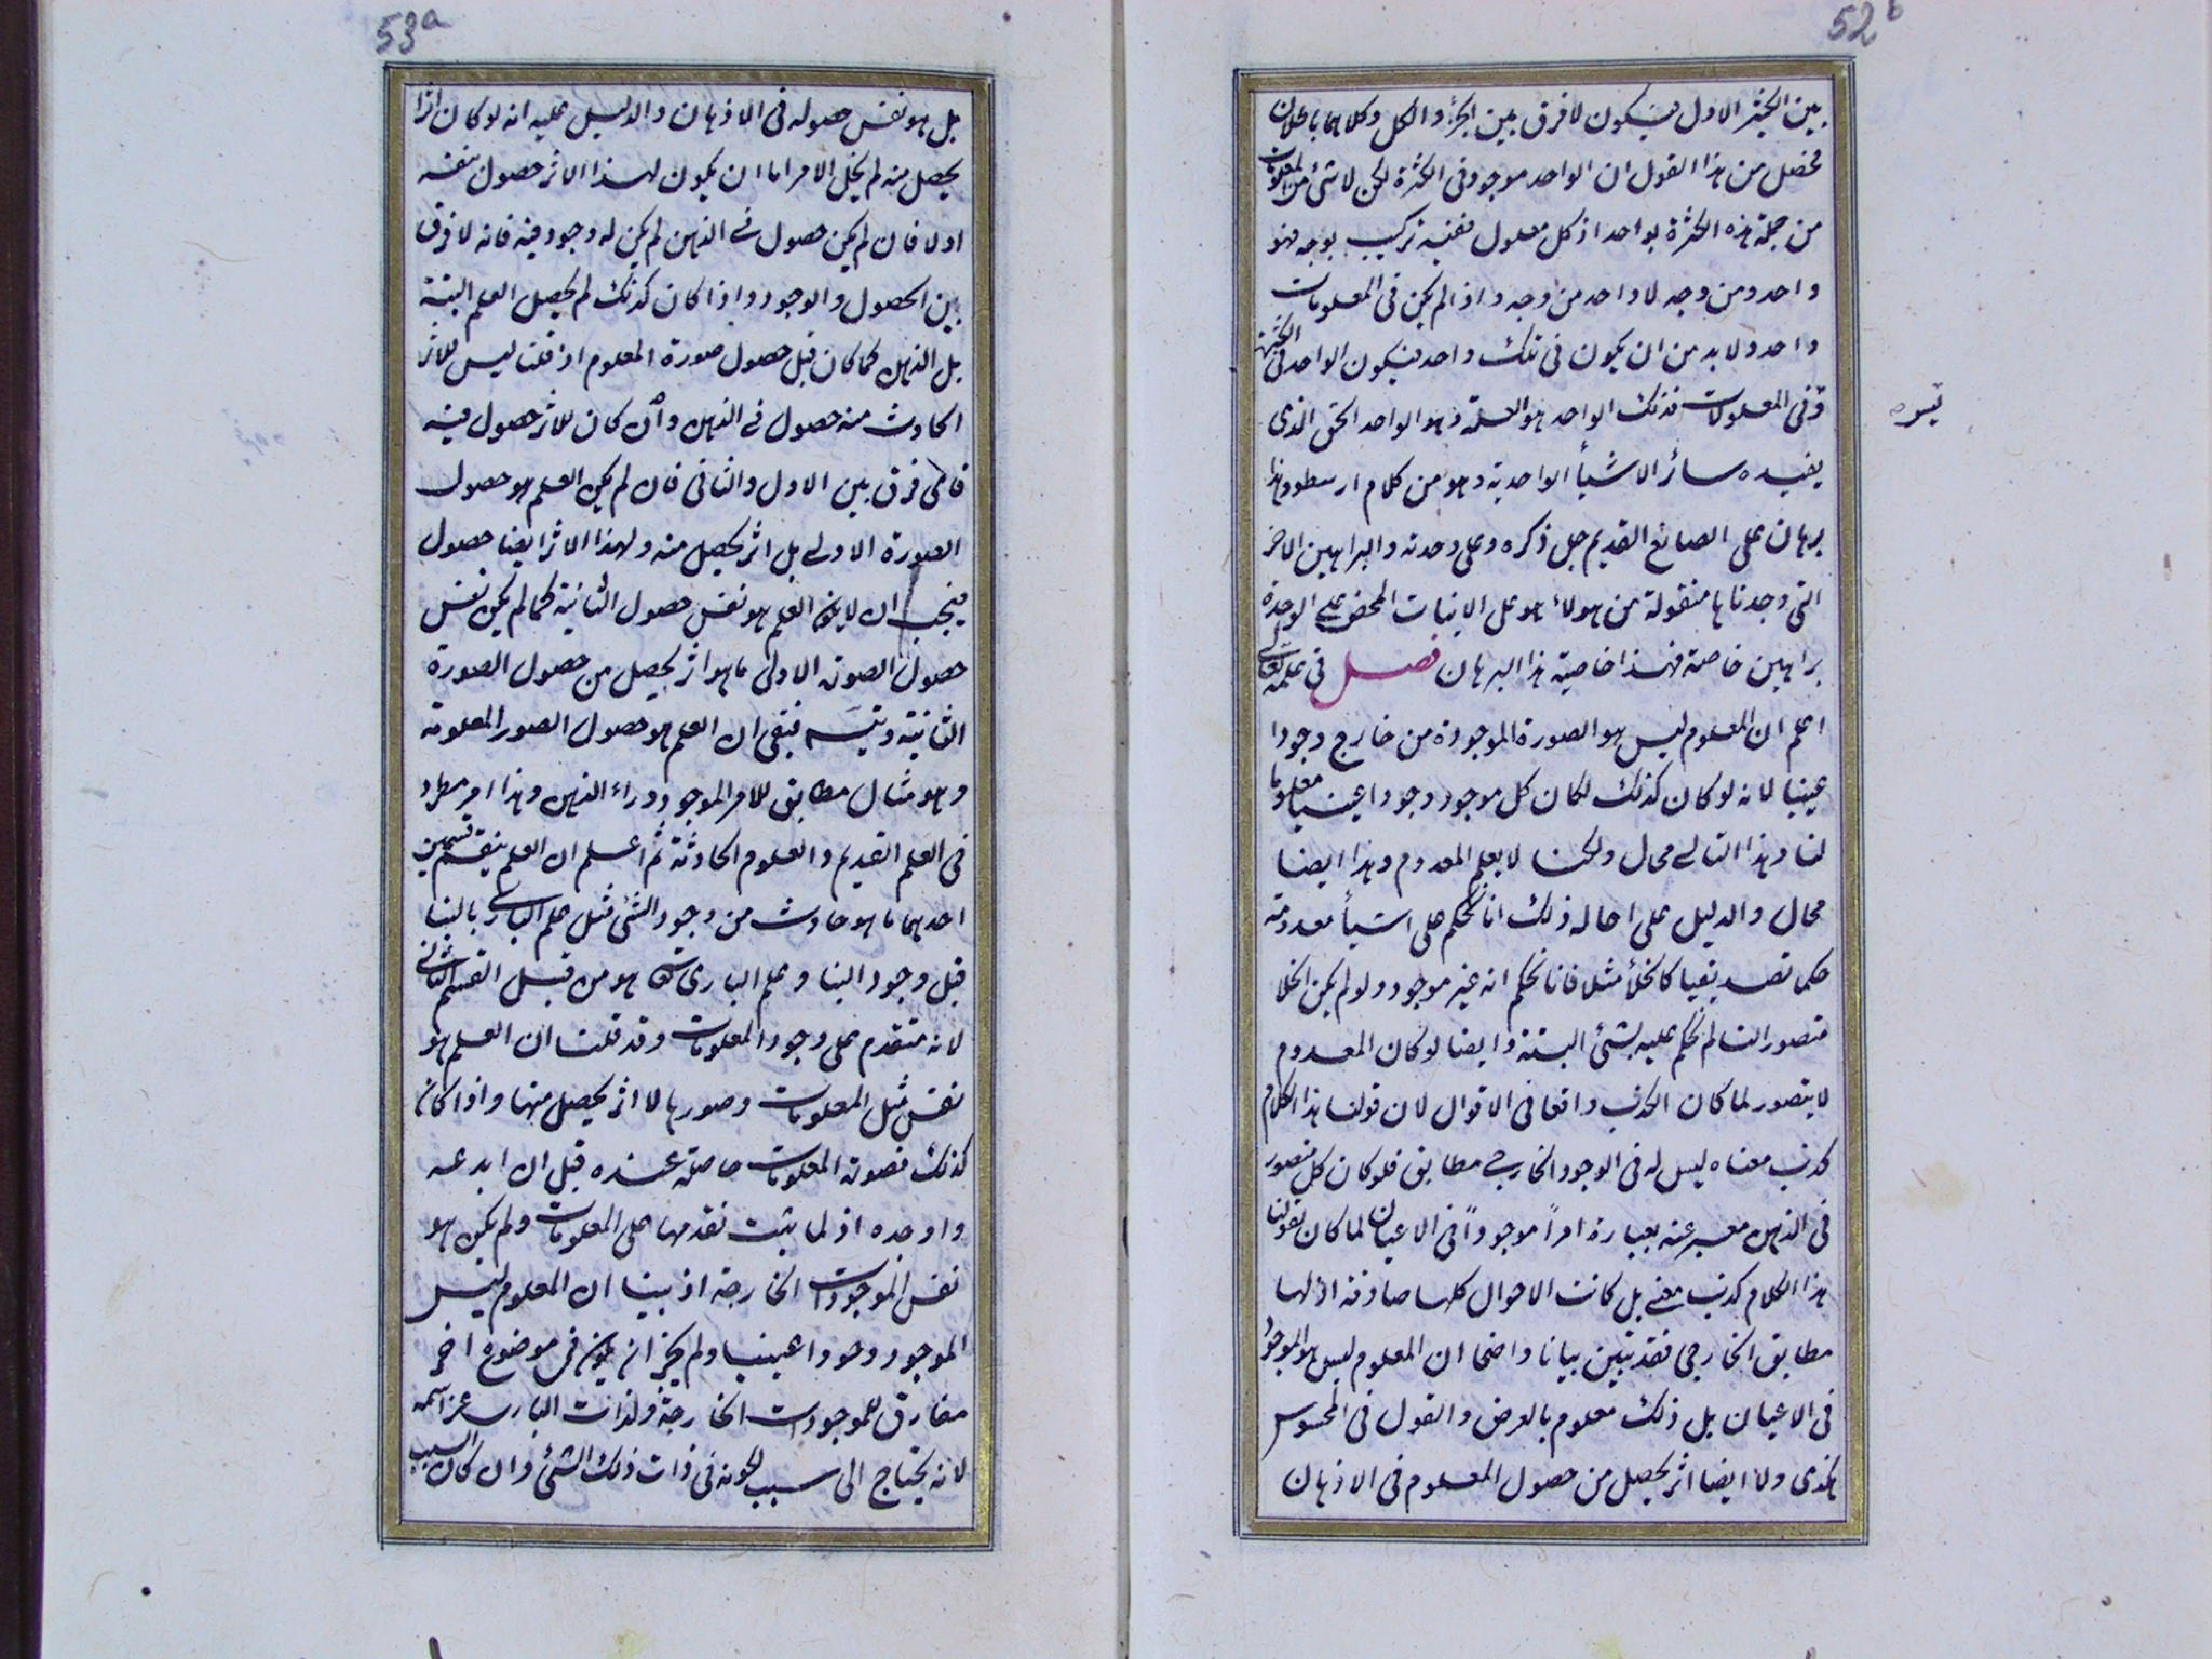 52b
بين الكثير الاول فيكون لا فرق بين الجزء والكل وكلاهما باطلان
فحصل من هذا القول ان الواحد موجود فى الكثرة لكن لا شئ من المعلولات
من جملة هذه الكثرة بواحد اذ كل معلول ففيه تركيب بوجه فهو
واحد ومن وجه لا واحد من وجه واذا لم يكن فى المعلولات
واحد ولا بد من ان يكون فى تلك واحد فيكون الواحد فى الكثيرة
وفى المعلولات فذلك الواحد هو العلة وهو الواحد الحق الذى
يفيده سائر الاشيأ الواحدية وهو من كلام ارسطو وهذا
برهان على الصانع القديم جل ذكره وعلى وحدته والبراهين الاخر
التى وجدناها منقولة من هولاء هو على الاثبات المحض على الوحدة
براهين خاصة فهذا خاصية هذا البرهان فصل فى علمه تعالى
اعلم ان المعلوم ليس هو الصورة الموجودة من خارج وجودا
عينيا لانه لو كان كذلك لكان كل موجود وجودا عينيا معلوما
لنا وهذا التالى محال ولكنا لا نعلم المعدوم وهذا ايضا
محال والدليل على احالة ذلك انا نحكم على اشيأ معدومة
حكما تصديقيا كالخلأ مثلا فانا نحكم انه غير موجود ولو لم يكن الخلا
متصورا لنا لم نحكم عليه بشئ البتة وايضا لو كان المعدوم
لا يتصور لما كان الكذب واقعا فى الاقوال لان قولنا هذا الكلام
كذب معناه ليس له فى الوجود الخارجى مطابق فلو كان كل متصور
فى الذهن معبر عنه بعبارة امراً موجوداً فى الاعيان لما كان لقولنا
هذا الكلام كذب معنى بل كانت الاحوال كلها صادقة اذ لها
مطابق الخارجى فقد تبين بيانا واضحا ان المعلوم ليس هو الموجود
فى الاعيان بل ذلك معلوم بالعرض والقول فى المحسوس
هكذى ولا ايضا اثر يحصل من حصول المعلوم فى الاذهان
53a
بل هو نفس حصوله فى الاذهان والدليل عليه انه لو كان اثرا
يحصل منه لم يخل الامر اما ان يكون لهذا الاثر حصول بنفسه
او لا فان لم يكن حصول فى الذهن لم يكن له وجود فيه فانه لا فرق
بين الحصول والوجود واذا كان كذلك لم يحصل العلم البتة
بل الذهن كما كان قبل حصول صورة المعلوم اذ قلنا ليس للاثر
الحادث منه حصول فى الذهن وان كان للاثر حصول فيه
فاى فرق بين الاول والثانى فان لم يكن العلم هو حصول
الصورة الاولى بل اثر يحصل منه ولهذا الاثر ايضا حصول
فيجب ان لا يكون العلم هو نفس حصول الثانية كما لم يكن نفس
حصول الصورة الاولى ما هو اثر يحصل من حصول الصورة
الثانية ويتسـ فبقى ان العلم هو حصول الصور المعلومة
وهو مثال مطابق للامر الموجود وراء الذهن وهذا امر مطرد
فى العلم القديم والعلوم الحادثة ثم اعلم ان العلم ينقسم قسمين
احدهما ما هو حادث من وجود الشئ مثل علم البانى بالبنا
قبل وجود البنا وعلم البارى تعالى هو من قبل القسم الثانى
لانه متقدم على وجود المعلومات وقد قلنا ان العلم هو
نفس مثل المعلومات وصورها لا اثر يحصل منها واذا كان
كذلك فصورة المعلومات حاصلة عنده قبل ان ابدعه
واوجده اذ لما ثبت تقدمها على المعلومات ولم يكن هو
نفس الموجودات الخارجة اذ بينا ان المعلوم ليس
الموجود وجودا عينيا ولم يجز ان يكون فى موضوع اخر
مفارق للموجودات الخارجة ولذات البارى عز اسمه
لانه يحتاج الى سبب لكونه فى ذات ذلك الشئ وان كان السبب